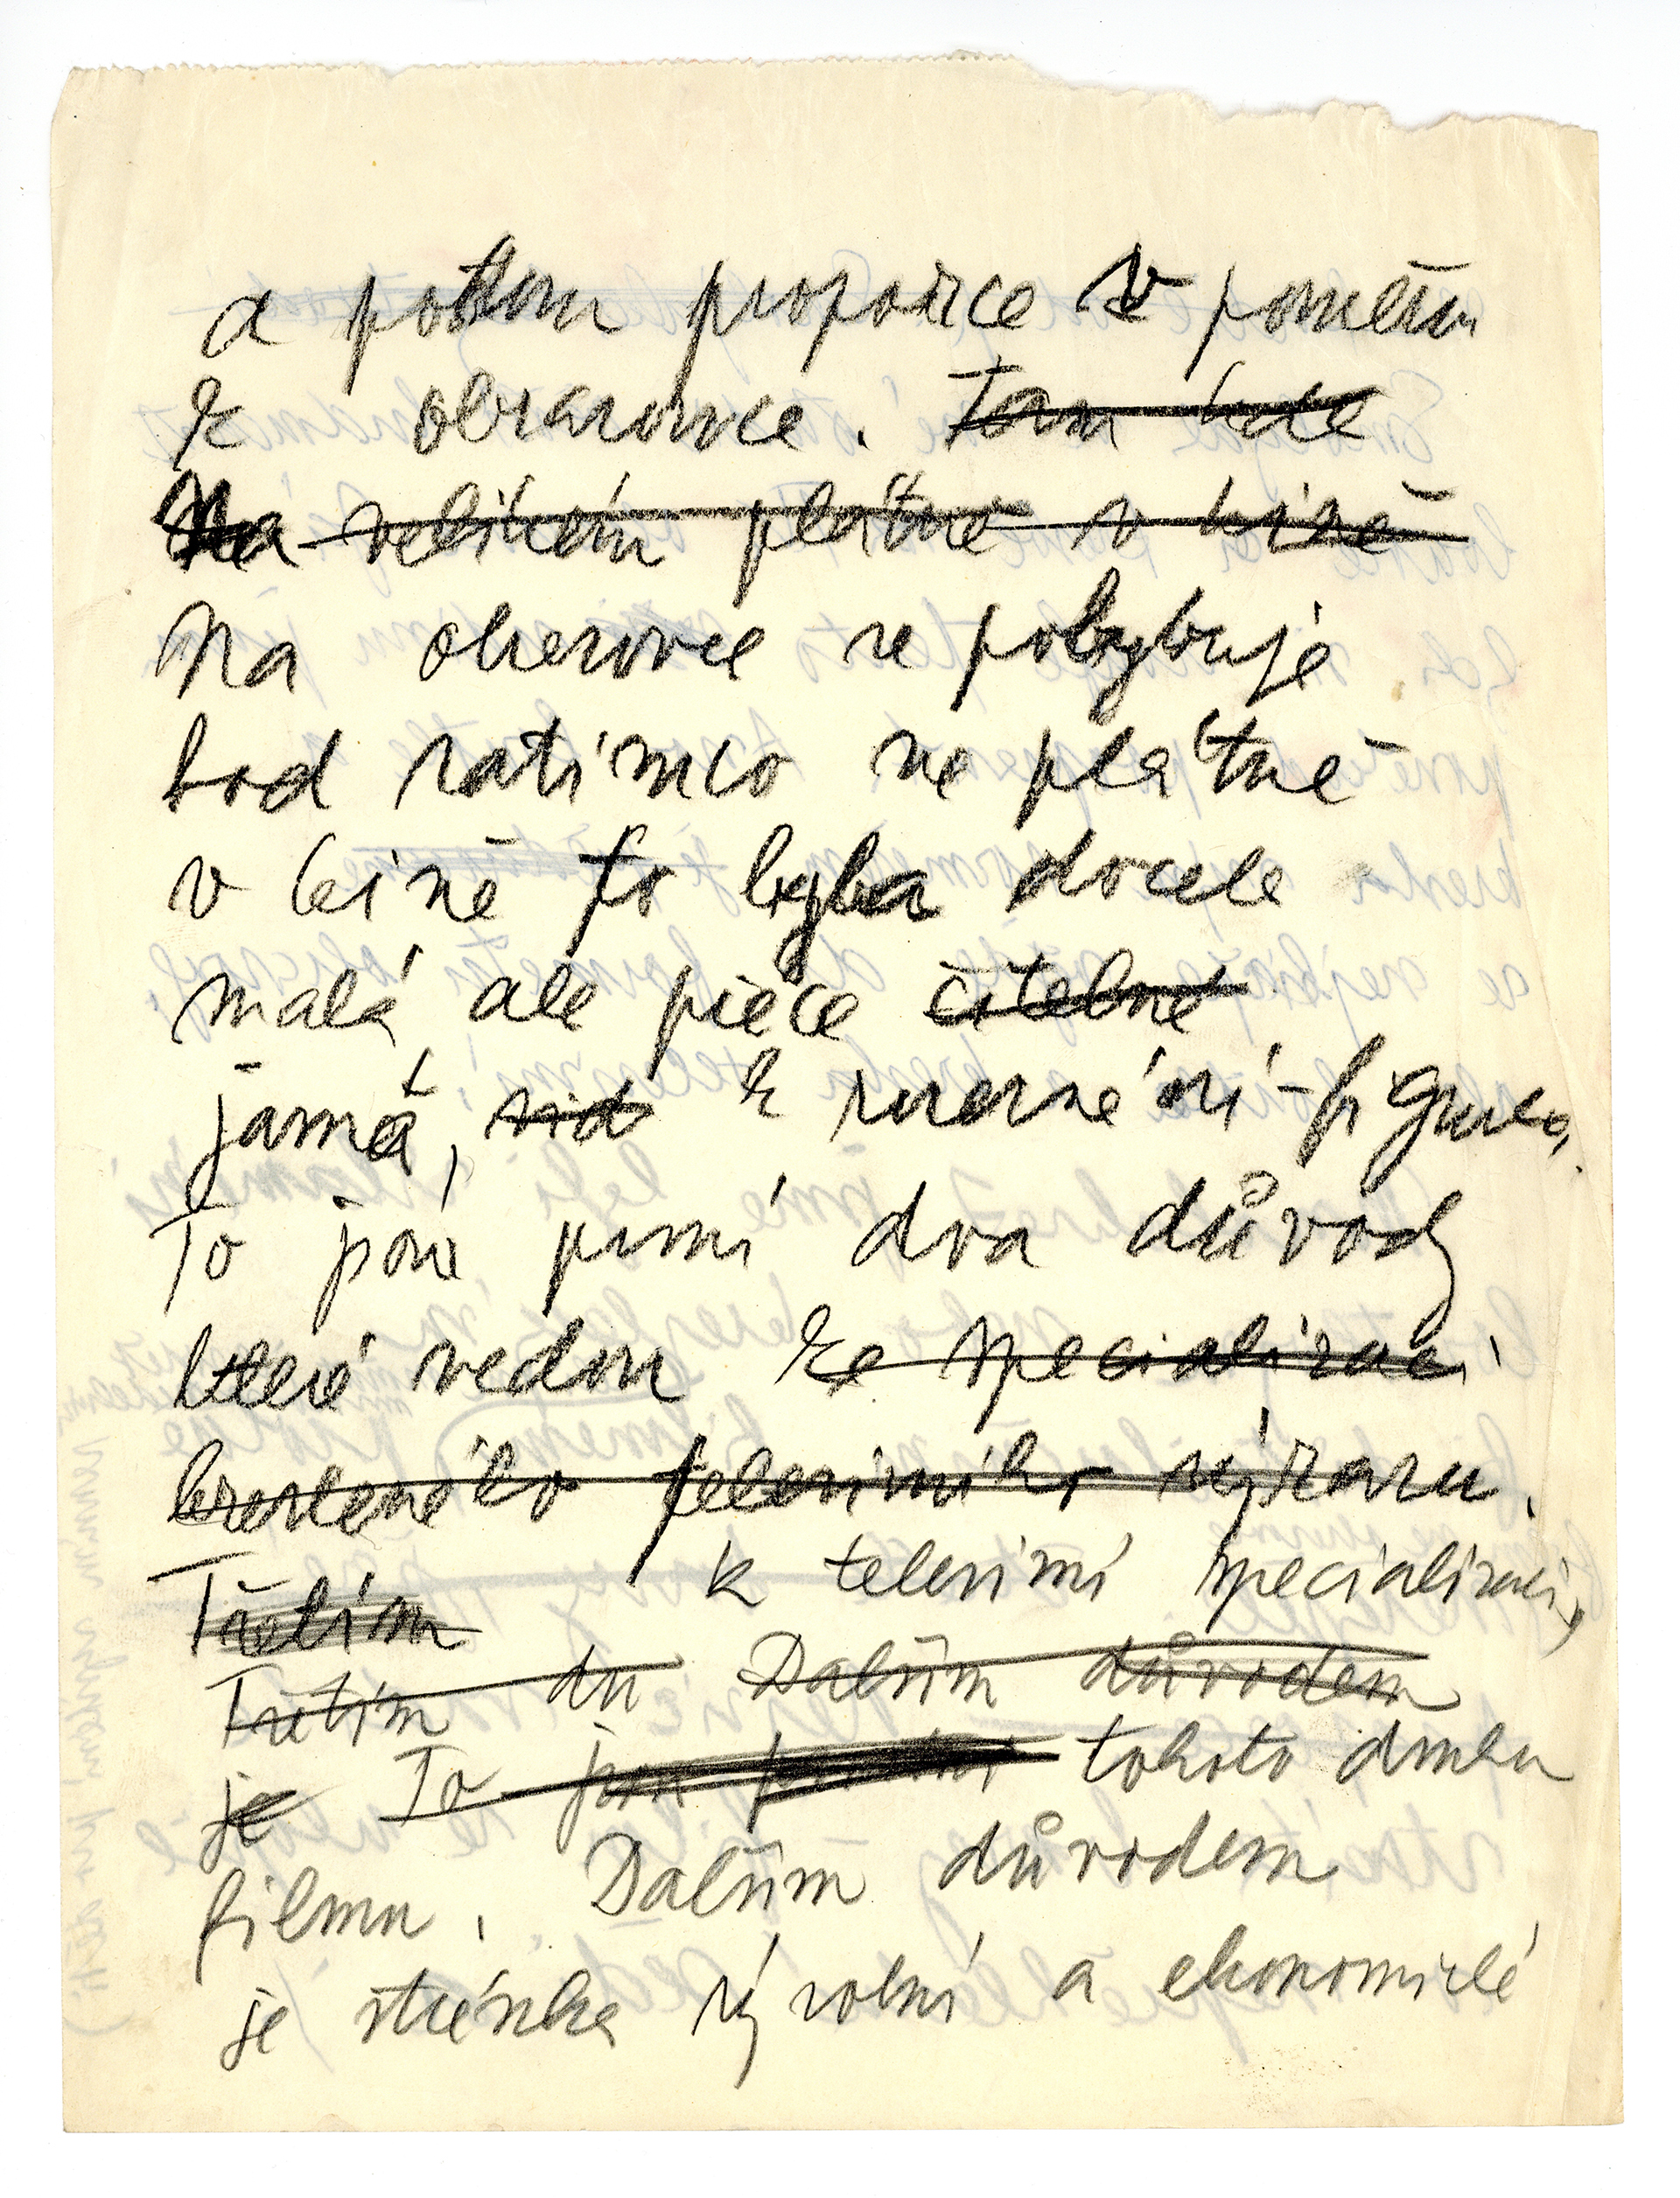 a potom proporce v poměru
k obrazovce. Tam kde
Na velikém plátně v kině
Na obrazovce se pohybuje
bod zatímco na plátně
v kině to byla docela
malá ale přece čitelně
jasná, vid k rozeznání figurka.
To jsou první dva důvody
které vedou ke specializaci
kresleného televizního výrazu.
Třetím k televizní specializaci,
Třetím dů Dalším důvodem
je To jsou tohoto druhu
filmu. Dalším důvodem
je stránka výrobní a ekonomické